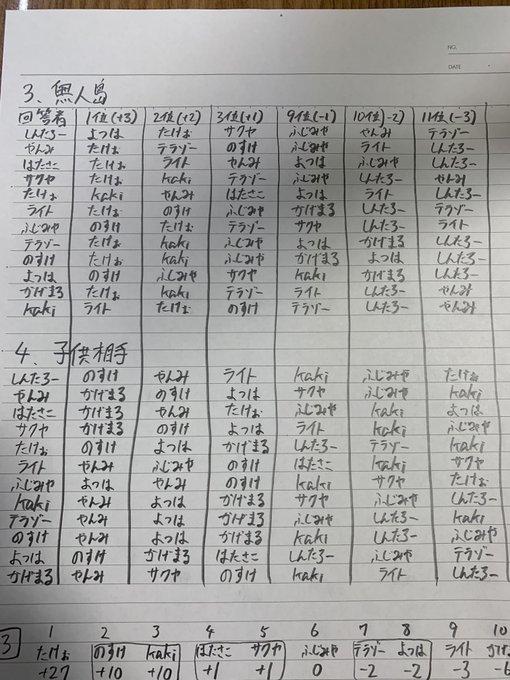 NO.
DATE
3、無人島
回答者 1位(+3) 2位(+2) 3位(+1) 9位(-1) 10位(-2) 11位(-3)
しんたろー よつは たけぉ サクヤ ふじみや やんみ テラゾー
やんみ たけぉ テラゾー のすけ ふじみや ライト しんたろー
はたさこ たけぉ ライト やんみ よつは ふじみや しんたろー
サクヤ たけぉ kaki テラゾー ふじみや しんたろー やんみ
たけぉ kaki やんみ はたさこ よつは ライト しんたろー
ライト たけぉ のすけ ふじみや かげまる しんたろー テラゾー
ふじみや のすけ たけぉ テラゾー サクヤ しんたろー ライト
テラゾー たけぉ kaki ふじみや よつは かげまる しんたろー
のすけ たけぉ kaki ふじみや かげまる よつは しんたろー
よつは のすけ ふじみや サクヤ kaki かげまる しんたろー
かげまる たけぉ kaki テラゾー ライト しんたろー やんみ
kaki ライト たけぉ のすけ テラゾー しんたろー やんみ
4、子供相手
しんたろー のすけ やんみ ライト kaki ふじみや たけぉ
やんみ かげまる のすけ よつは サクヤ ふじみや kaki
はたさこ かげまる やんみ たけぉ ふじみや kaki よつは
サクヤ かげまる のすけ よつは ライト kaki ふじみや
たけぉ のすけ よつは かげまる しんたろー テラゾー kaki
ライト やんみ ふじみや のすけ はたさこ kaki サクヤ
ふじみや よつは やんみ のすけ kaki サクヤ たけぉ
kaki やんみ よつは かげまる サクヤ ふじみや しんたろー
テラゾー やんみ よつは かげまる ふじみや しんたろー kaki
のすけ やんみ よつは かげまる kaki しんたろー ふじみや
よつは のすけ かげまる はたさこ しんたろー ふじみや テラゾー
かげまる やんみ サクヤ のすけ kaki ライト しんたろー
3 1 2 3 4 5 6 7 8 9 10
たけぉ のすけ kaki はたさこ サクヤ ふじみや テラゾー よつは ライト かげ
+27 +10 +10 +1 +1 0 -2 -2 -3 -6